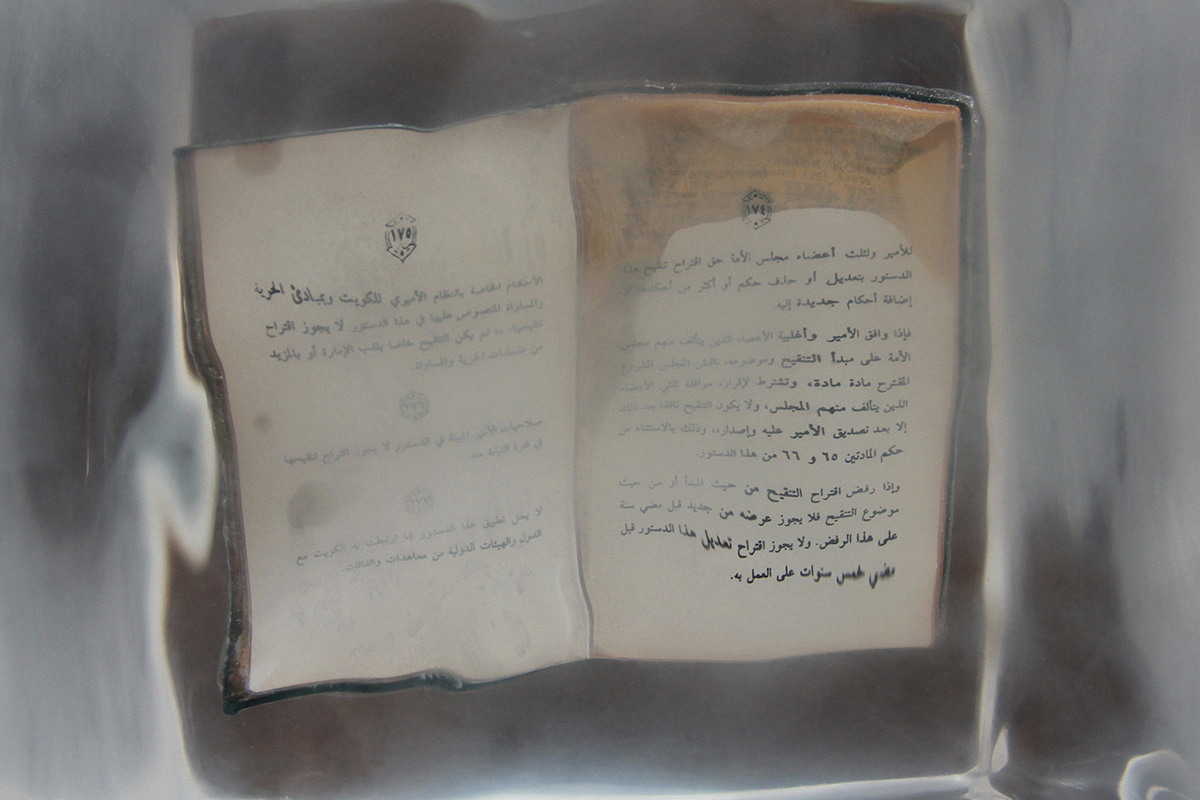 ١٧٤
للأمير ولثلث أعضاء مجلس الأمة حق اقتراح تنقيح هذا
الدستور بتعديل أو حذف حكم أو أكثر من أحكامه، أو
إضافة أحكام جديدة إليه.
فإذا وافق الأمير وأغلبية الأعضاء الذين يتألف منهم مجلس
الأمة على مبدأ التنقيح وموضوعه، ناقش المجلس المشروع
المقترح مادة مادة، وتشترط لإقراره موافقة ثلثي الأعضاء
الذين يتألف منهم المجلس، ولا يكون التنقيح نافذا بعد ذلك
إلا بعد تصديق الأمير عليه وإصداره، وذلك بالاستثناء من
حكم المادتين ٦٥ و ٦٦ من هذا الدستور.
وإذا رفض اقتراح التنقيح من حيث المبدأ أو من حيث
موضوع التنقيح فلا يجوز عرضه من جديد قبل مضي سنة
على هذا الرفض. ولا يجوز اقتراح تعديل هذا الدستور قبل
مضي خمس سنوات على العمل به.
١٧٥
الأحكام الخاصة بالنظام الأميري للكويت وبمبادئ الحرية
والمساواة المنصوص عليها في هذا الدستور لا يجوز اقتراح
تنقيحها، ما لم يكن التنقيح خاصا بلقب الإمارة أو بالمزيد
من ضمانات الحرية والمساواة.
١٧٦
صلاحيات الأمير المبينة في الدستور لا يجوز اقتراح تنقيحها
في فترة النيابة عنه.
١٧٧
لا يخل تطبيق هذا الدستور بما ارتبطت به الكويت مع
الدول والهيئات الدولية من معاهدات واتفاقات.